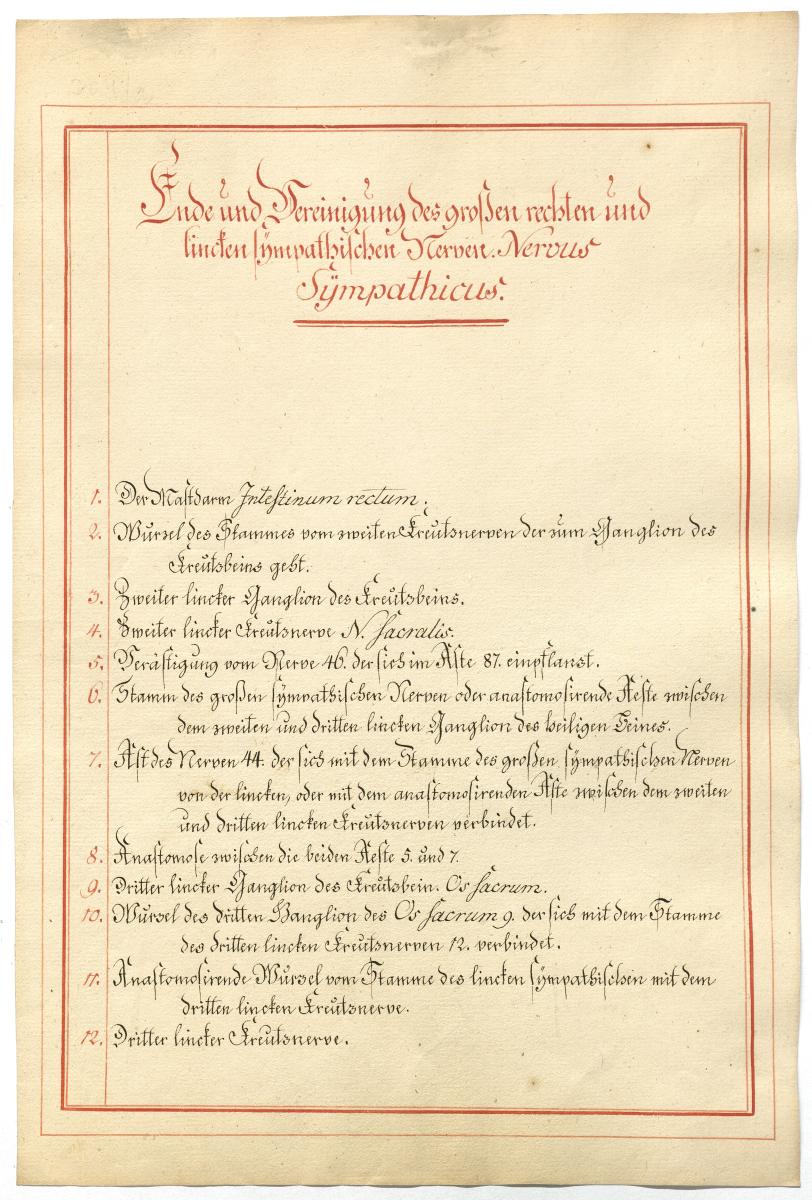 Ende und Vereinigung des großen rechten und
lincken sÿmpathischen Nerven. Nervus
Sÿmpathicus.
1. Der Mastdarm Intestinum rectum.
2. Wurzel des Stammes vom zweiten Kreutznerven der zum Ganglion des
Kreutzbeins geht.
3. Zweiter lincker Ganglion des Kreutzbeins.
4. Zweiter lincker Kreutznerve N. Sacralis.
5. Verästigung vom Nerve 46. der sich im Äste 87. einpflanzt.
6. Stamm des großen sÿmpathischen Nerven oder anastomosirende Aeste zwischen
dem zweiten und dritten lincken Ganglion des heiligen Beines.
7. Ast des Nerven 44. der sich mit dem Stamme des großen sÿmpathischen Nerven
von der lincken, oder mit dem anastomosirenden Äste zwischen dem zweiten
und dritten lincken Kreutznerven verbindet.
8. Anastomose zwischen die beiden Aeste 5. und 7.
9. Dritter lincker Ganglion des Kreutzbein. Os sacrum.
10. Wurzel des dritten Ganglion des Os sacrum 9. der sich mit dem Stamme
des dritten lincken Kreutznerven 12. verbindet.
11. Anastomosirende Wurzel vom Stamme des lincken sÿmpathischen mit dem
dritten lincken Kreutznerve.
12. Dritter lincker Kreutznerve.